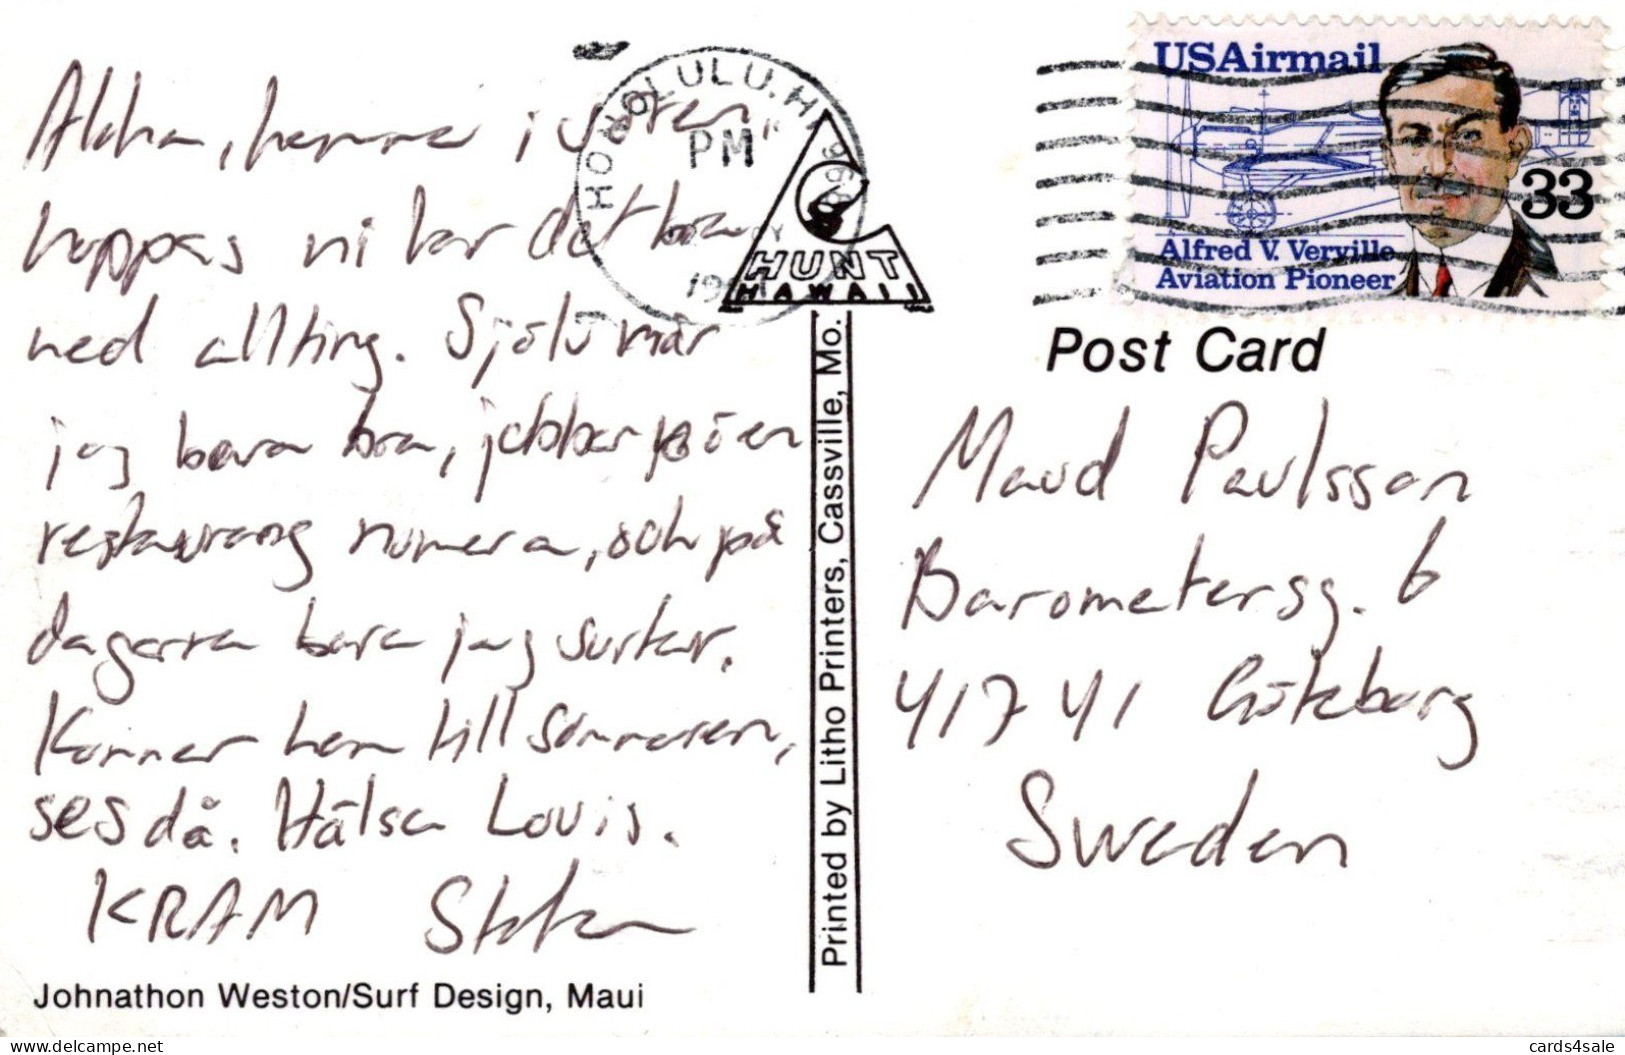 Aloha, hemma i v
hoppas ni har det bra
med allting. Själv mår
jag bara bra, jobbar på en
restaurang numera, och på
dagarna bara jag surfar.
Kommer hem till sommaren,
ses då. Hälsa Lovis.
KRAM Stefan
Johnathon Weston/Surf Design, Maui
HONOLULU, HI
PM
19
HUNT
HAWAII
Printed by Litho Printers, Cassville, Mo.
USAirmail
33
Alfred V. Verville
Aviation Pioneer
Post Card
Maud Paulsson
Barometersg. 6
41741 Göteborg
Sweden
delcampe.net
cards4sale